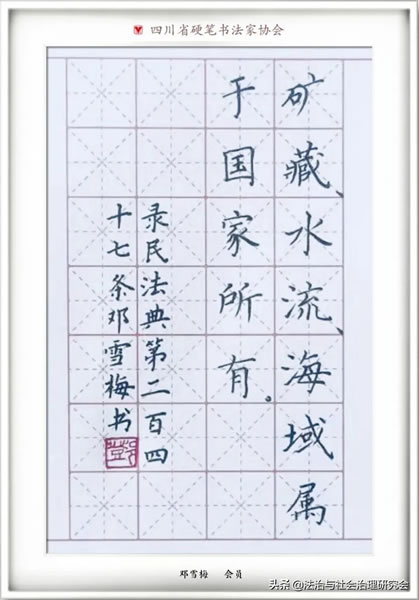 四川省硬笔书法家协会
矿藏、水流、海域属
于国家所有。
录民法典第二百四
十七条邓雪梅书
邓雪梅 会员
头条@法治与社会治理研究会